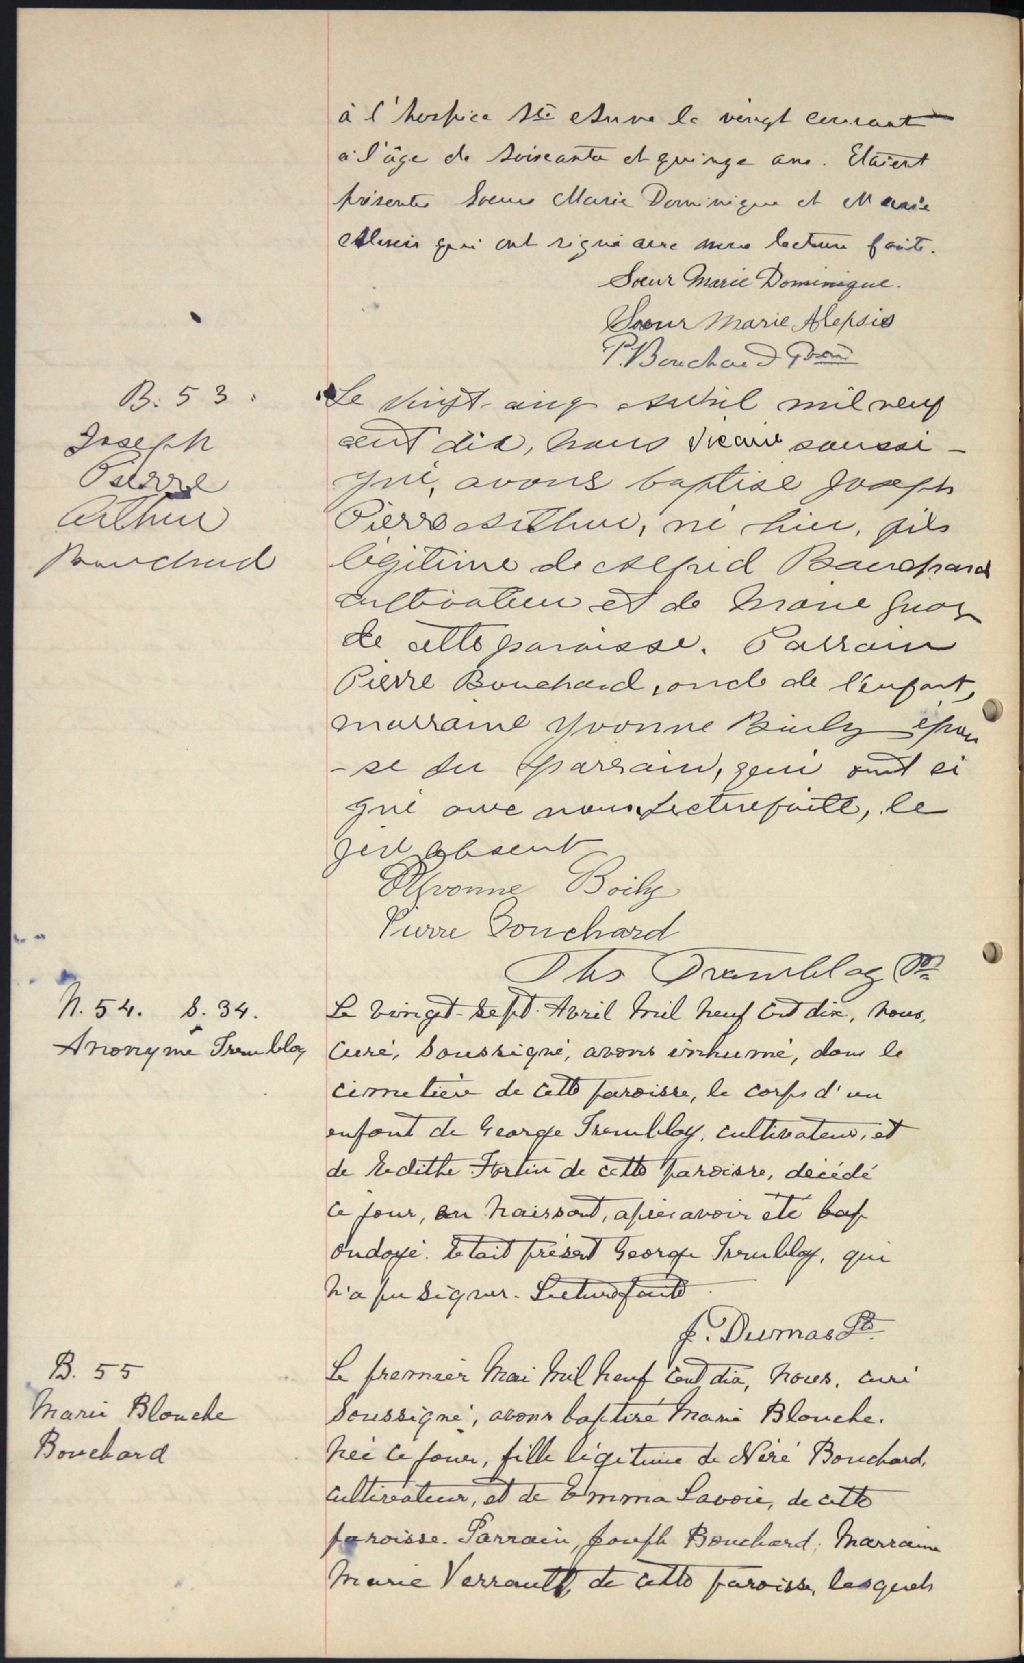 à l'hospice Ste Anne le vingt courant
à l'âge de soixante et quinze ans. Etaient
présentes Soeurs Marie Dominique et Marie
Alexis qui ont signé avec nous lecture faite.
Soeur Marie Dominique.
Soeur Marie Alepsis
P. Bouchard Ptre
B. 53.
Joseph
Pierre
Arthur
Bouchard
Le vingt-cinq Avril mil neuf
cent dix, nous vicaire soussi-
gné, avons baptisé Joseph
Pierre Arthur, né hier, fils
légitime de Bouchard
cultivateur et de Marie Guay
de cette paroisse. Parrain
Pierre Bouchard, oncle de l'enfant,
marraine Yvonne Boily épou
-se du parrain, qui ont si
gné avec nous. Lecture faite, le
père absent
Yvonne Boily
Pierre Bouchard
Ths Tremblay Ptre
N. 54. S. 34.
Anonyme Tremblay
Le vingt-sept Avril mil neuf cent dix, nous,
curé, soussigné, avons inhumé, dans le
cimetière de cette paroisse, le corps d'un
enfant de George Tremblay, cultivateur, et
de Edithe Fortin de cette paroisse, décédé
ce jour, en naissant, après avoir été bap
ondoyé. Etait présent George Tremblay, qui
n'a pu signer. Lecture faite
J. Dumas Ptre
B. 55
Marie Blanche
Bouchard
Le premier Mai mil neuf cent dix, nous, curé
soussigné, avons baptisé Marie Blanche.
née ce jour, fille légitime de Néré Bouchard,
cultivateur, et de Emma Savoie, de cette
paroisse. Parrain, Joseph Bouchard; Marraine
Marie Verrault, de cette paroisse, lesquels